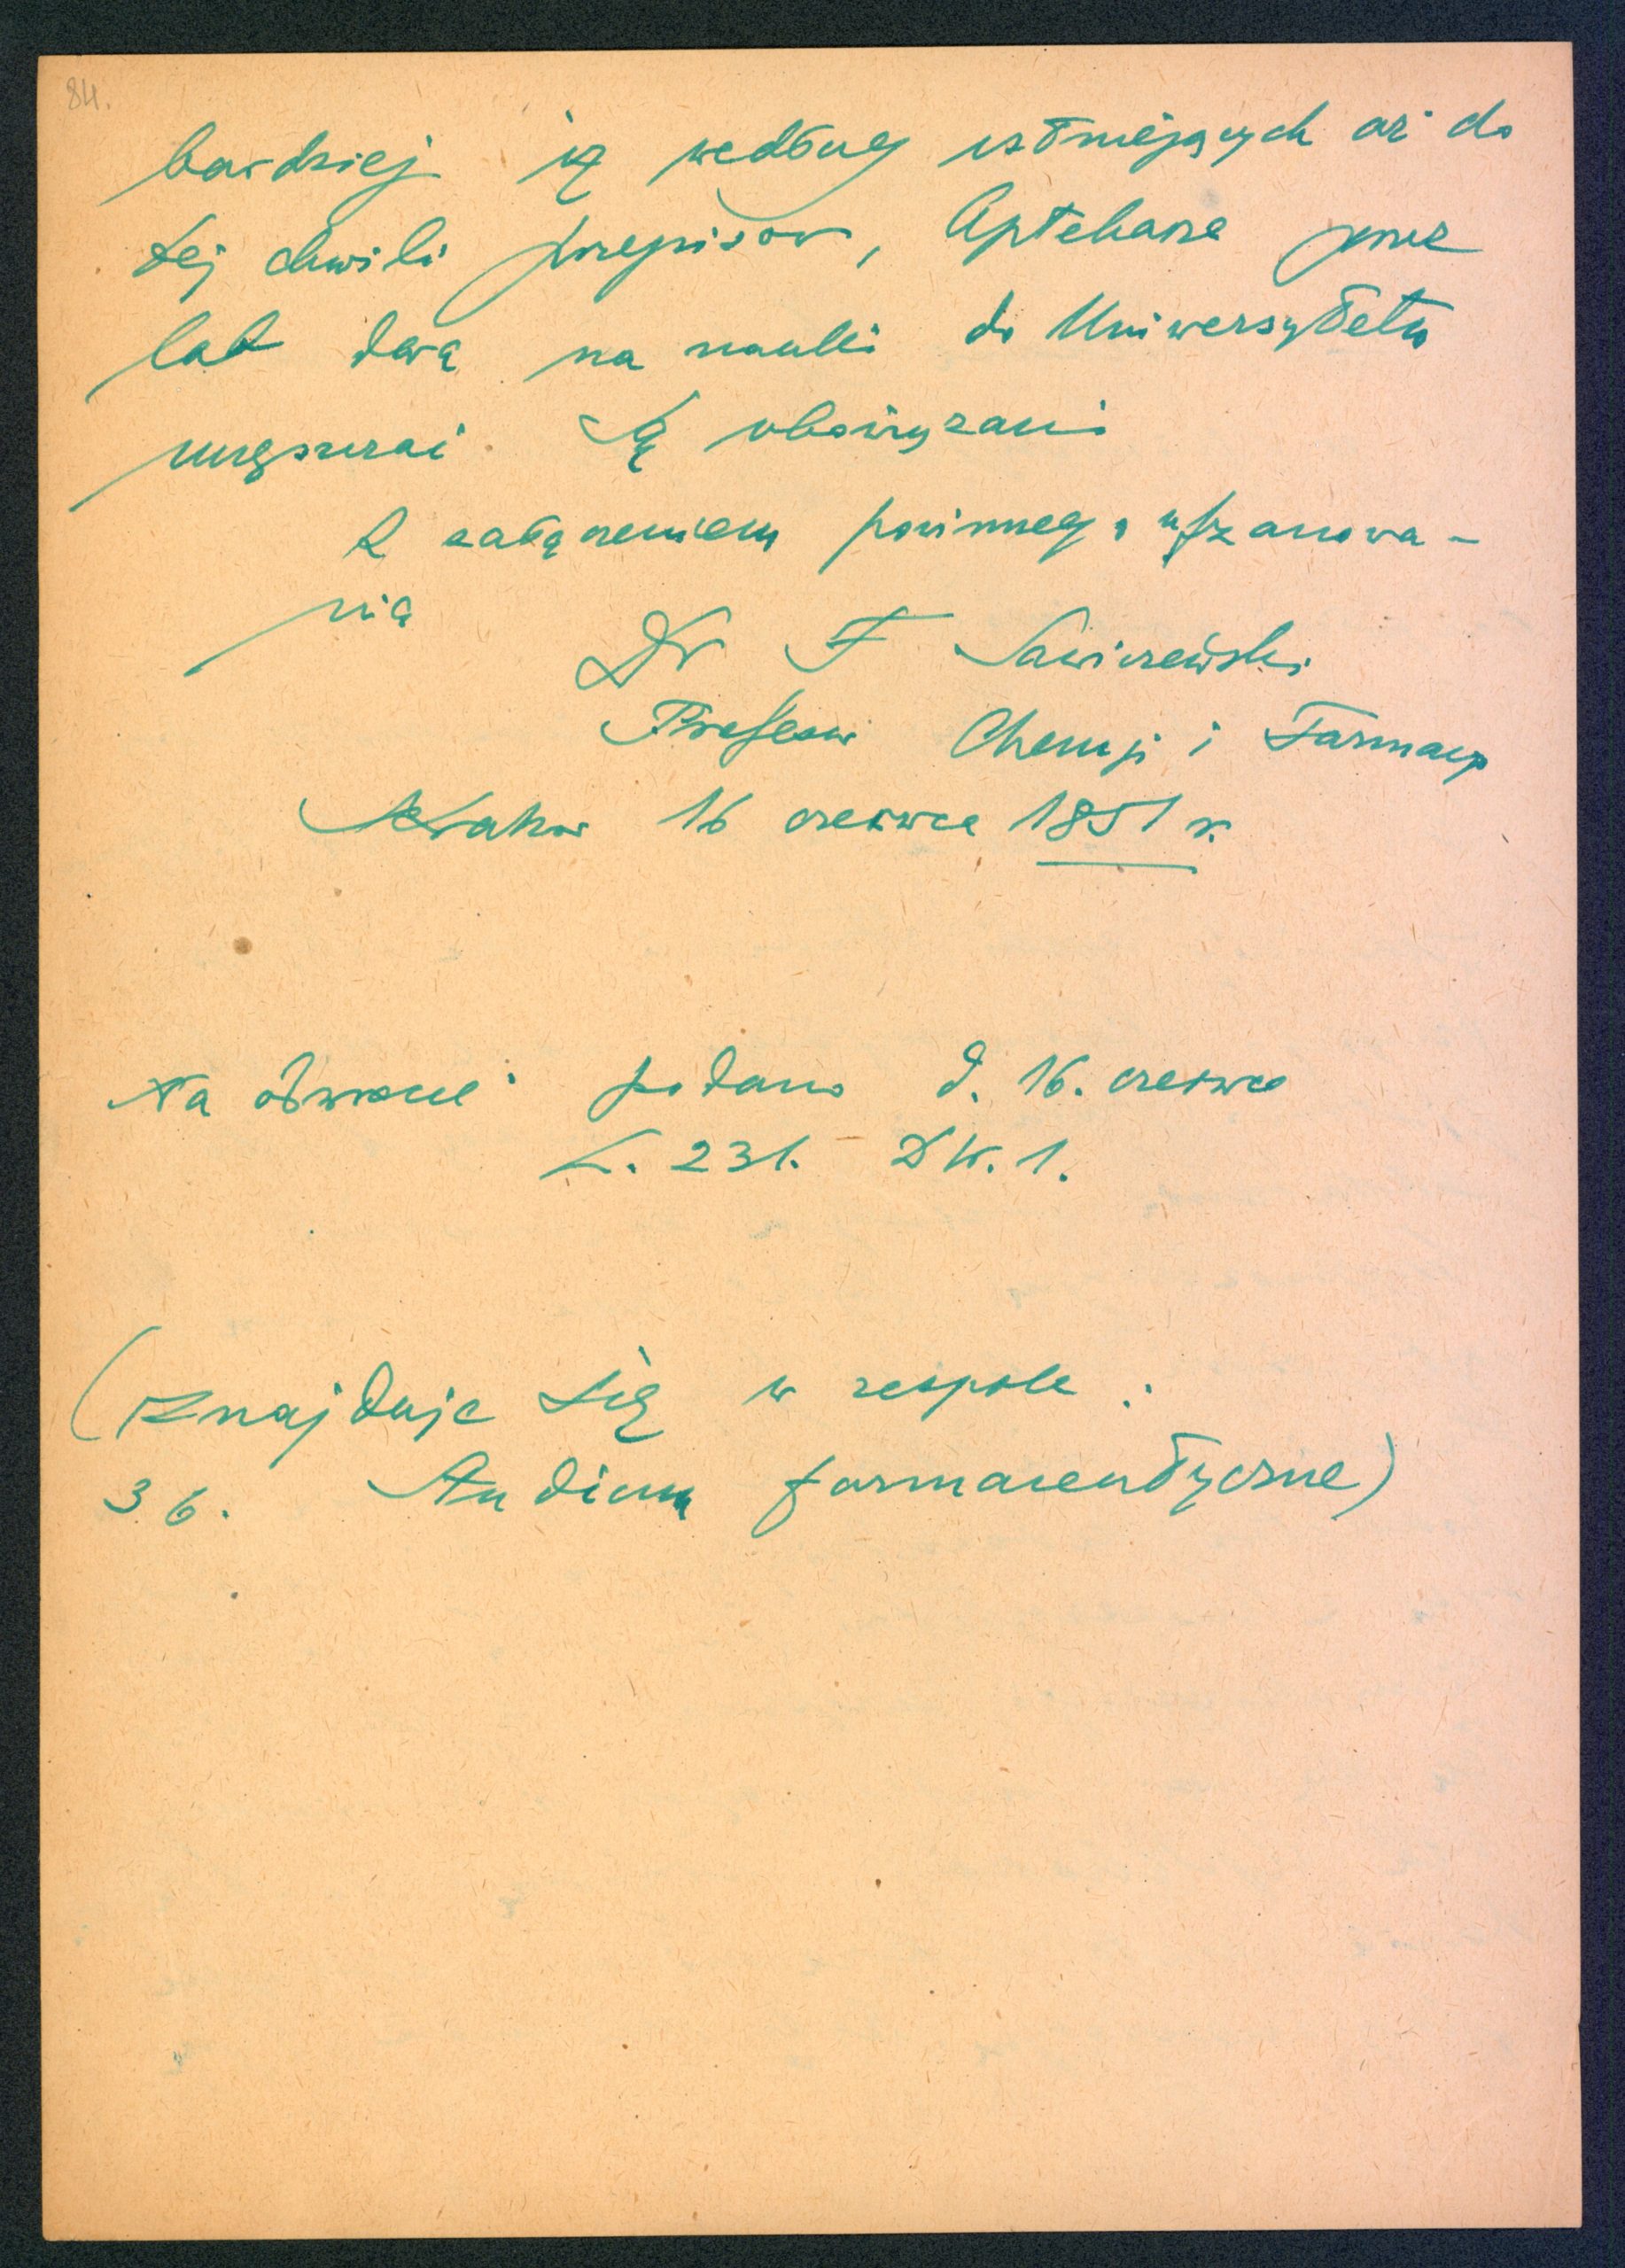 84.
bardziej iż według istniejących aż do
tej chwili przepisów, Aptekarze przez
lat dwa na nauki do Uniwersytetu
uczęszczać są obowiązani
Z załączeniem powinnego uszanowa-
nia
Dr F Sawiczewski
Profesor Chemji i Farmacji
Kraków 16 czerwca 1851 r.
Na odwrocie: podano d. 16. czerwca
L. 231. DW. 1.
(Znajduje się w zespole:
36. Studium farmaceutyczne)